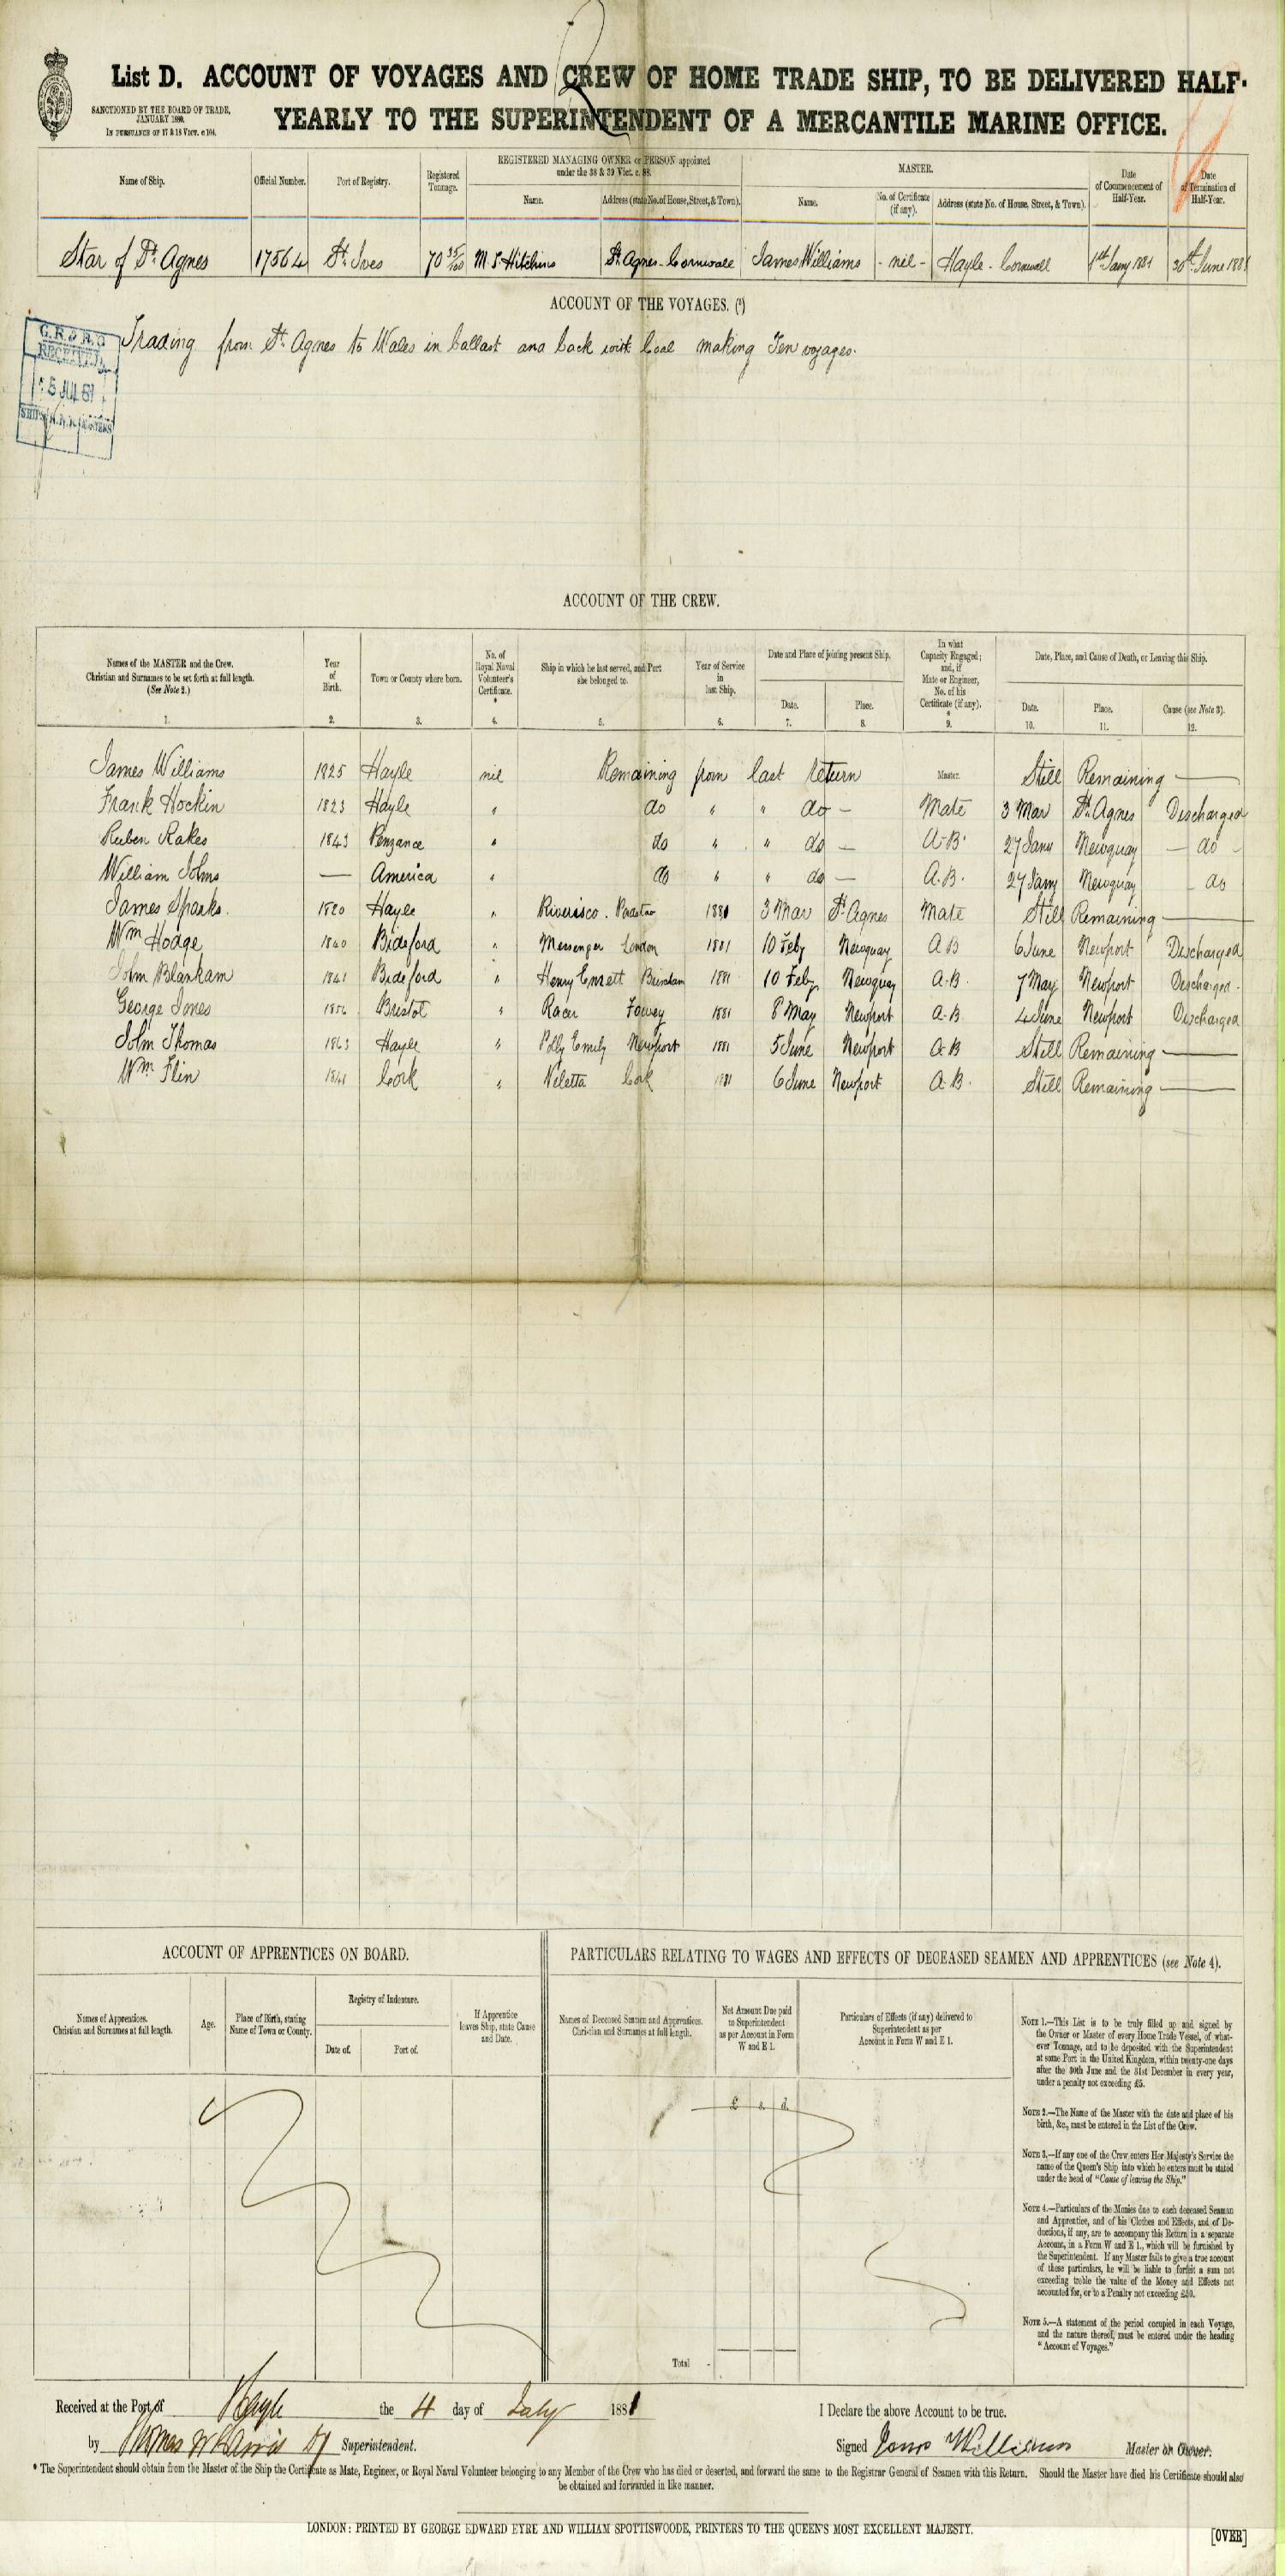 List D. ACCOUNT OF VOYAGES AND CREW OF HOME TRADE SHIP, TO BE DELIVERED HALF-
YEARLY TO THE SUPERINTENDENT OF A MERCANTILE MARINE OFFICE.
SANCTIONED BY THE BOARD OF TRADE,
JANUARY 1880.
IN PURSUANCE OF 17 & 18 VICT. c. 104.
Name of Ship. Official Number. Port of Registry. Registered Tonnage. REGISTERED MANAGING OWNER or PERSON appointed under the 38 & 39 Vict. c. 88. MASTER. Date of Commencement of Half-Year. Date of Termination of Half-Year.
Name. Address (state No. of House, Street, & Town). Name. No. of Certificate (if any). Address (state No. of House, Street, & Town).
Star of St. Agnes 17564 St. Ives 70 35/100 M. S. Hitchins St. Agnes - Cornwall James Williams - nil - Hayle - Cornwall 1st Jany 1881 30th June 1881
ACCOUNT OF THE VOYAGES. (5)
G.R.&R.G
RECEIVED
5 JUL 81
Trading from St. Agnes to Wales in ballast and back with Coal making Ten voyages.
ACCOUNT OF THE CREW.
Names of the MASTER and the Crew. Christian and Surnames to be set forth at full length. (See Note 2.) Year of Birth. Town or County where born. No. of Royal Naval Volunteer's Certificate. * Ship in which he last served, and Port she belonged to. Year of Service in last Ship. Date and Place of joining present Ship. In what Capacity Engaged; and, if Mate or Engineer, No. of his Certificate (if any). Date, Place, and Cause of Death, or Leaving this Ship.
Date. Place. Date. Place. Cause (see Note 3).
1. 2. 3. 4. 5. 6. 7. 8. 9. 10. 11. 12.
James Williams 1825 Hayle nil Remaining from last return Master. Still Remaining —
Frank Hockin 1823 Hayle " do " " do - Mate 3 Mar St. Agnes Discharged
Reuben Rakes 1843 Penzance " do " " do - A.B. 27 Jany Newquay - do -
William Johns — America " do " " do - A.B. 27 Jany Newquay - do
James Sparks. 1820 Hayle " Padstow 1881 3 Mar St. Agnes Mate Still Remaining —
Wm Hodge 1840 Bideford " Messenger London 1881 10 Feby Newquay A B 6 June Newport Discharged
John Blanham 1841 Bideford " Henry 1881 10 Feby Newquay A.B. 7 May Newport Discharged.
George Jones Bristol " Racer Fowey 1881 8 May Newport A.B 4 June Newport Discharged
John Thomas 1863 Hayle " Polly Emily Newport 1881 5 June Newport A.B Still Remaining —
Wm. Flin 1841 Cork " Cork 1881 6 June Newport A.B. Still Remaining —
ACCOUNT OF APPRENTICES ON BOARD.
Names of Apprentices. Christian and Surnames at full length. Age. Place of Birth, stating Name of Town or County. Registry of Indenture. If Apprentice leaves Ship, state Cause and Date.
Date of. Port of.
PARTICULARS RELATING TO WAGES AND EFFECTS OF DECEASED SEAMEN AND APPRENTICES (see Note 4).
Names of Deceased Seamen and Apprentices. Christian and Surnames at full length. Net Amount Due paid to Superintendent as per Account in Form W and E 1. Particulars of Effects (if any) delivered to Superintendent as per Account in Form W and E 1.
£ s. d.
Total
NOTE 1.—This List is to be truly filled up and signed by
the Owner or Master of every Home Trade Vessel, of what-
ever Tonnage, and to be deposited with the Superintendent
at some Port in the United Kingdom, within twenty-one days
after the 30th June and the 31st December in every year,
under a penalty not exceeding £5.
NOTE 2.—The Name of the Master with the date and place of his
birth, &c., must be entered in the List of the Crew.
NOTE 3.—If any one of the Crew enters Her Majesty's Service the
name of the Queen's Ship into which he enters must be stated
under the head of "Cause of leaving the Ship."
NOTE 4.—Particulars of the Monies due to each deceased Seaman
and Apprentice, and of his Clothes and Effects, and of De-
ductions, if any, are to accompany this Return in a separate
Account, in a Form W and E 1., which will be furnished by
the Superintendent. If any Master fails to give a true account
of these particulars, he will be liable to forfeit a sum not
exceeding treble the value of the Money and Effects not
accounted for, or to a Penalty not exceeding £50.
NOTE 5.—A statement of the period occupied in each Voyage,
and the nature thereof, must be entered under the heading
"Account of Voyages."
Received at the Port of Hayle the 4 day of July 1881
by Thomas Dy Superintendent.
I Declare the above Account to be true.
Signed James Williams Master or Owner.
* The Superintendent should obtain from the Master of the Ship the Certificate as Mate, Engineer, or Royal Naval Volunteer belonging to any Member of the Crew who has died or deserted, and forward the same to the Registrar General of Seamen with this Return. Should the Master have died his Certificate should also
be obtained and forwarded in like manner.
LONDON: PRINTED BY GEORGE EDWARD EYRE AND WILLIAM SPOTTISWOODE, PRINTERS TO THE QUEEN'S MOST EXCELLENT MAJESTY.
[OVER]